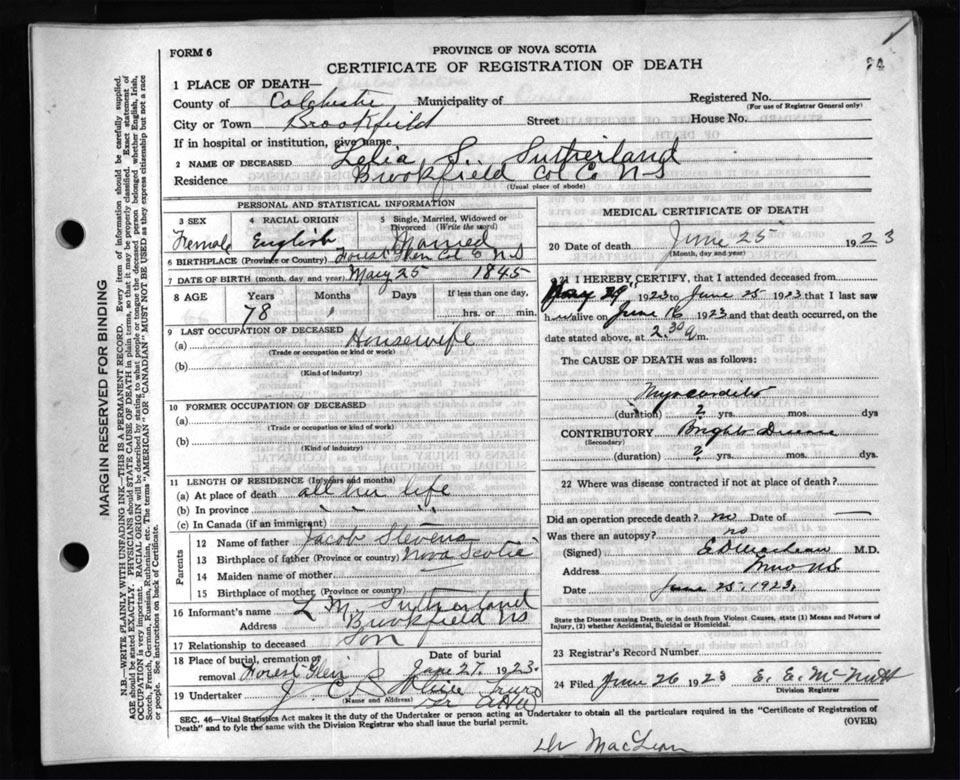 FORM 6
PROVINCE OF NOVA SCOTIA
CERTIFICATE OF REGISTRATION OF DEATH
1 PLACE OF DEATH—
County of Colchester Municipality of Registered No.
(For use of Registrar General only)
City or Town Brookfield Street House No.
If in hospital or institution, give name
2 NAME OF DECEASED Lelia S. Sutherland
Residence Brookfield Col Co N S
(Usual place of abode)
PERSONAL AND STATISTICAL INFORMATION
3 SEX
Female
4 RACIAL ORIGIN
English
5 Single, Married, Widowed or Divorced (Write the word)
Married
6 BIRTHPLACE (Province or Country) Forest Glen Col Co N S
7 DATE OF BIRTH (month, day and year) May 25 1845
8 AGE Years Months Days If less than one day,
78 hrs. or min.
9 LAST OCCUPATION OF DECEASED
(a) Housewife
(Trade or occupation or kind or work)
(b)
(Kind of industry)
10 FORMER OCCUPATION OF DECEASED
(a)
(Trade or occupation or kind of work)
(b)
(Kind of industry)
11 LENGTH OF RESIDENCE (In years and months)
(a) At place of death all her life
(b) In province " " "
(c) In Canada (if an immigrant)
Parents
12 Name of father Jacob Stevens
13 Birthplace of father (Province or country) Nova Scotia
14 Maiden name of mother
15 Birthplace of mother (Province or country)
16 Informant's name L M Sutherland
Address Brookfield NS
17 Relationship to deceased Son
18 Place of burial, cremation or removal Forest Glen
Date of burial June 27 1923.
19 Undertaker J C B Truro
(Name and Address)
MEDICAL CERTIFICATE OF DEATH
20 Date of death June 25 1923
(Month, day and year)
21 I HEREBY CERTIFY, that I attended deceased from
29 1923 to June 25 1923 that I last saw
h alive on June 16 1923 and that death occurred, on the
date stated above, at 2.30 a m.
The CAUSE OF DEATH was as follows:
Myocarditis
(duration) ? yrs. mos. dys
CONTRIBUTORY Brights Disease
(Secondary)
(duration) ? yrs. mos. dys.
22 Where was disease contracted if not at place of death?
Did an operation precede death? no Date of —
Was there an autopsy? no
(Signed) M.D.
Address Truro NS
Date June 25, 1923,
State the Disease causing Death, or in death from Violent Causes, state (1) Means and Nature of Injury, (2) whether Accidental, Suicidal or Homicidal.
23 Registrar's Record Number
24 Filed June 26 1923 E. E. McNutt
Division Registrar
SEC. 46—Vital Statistics Act makes it the duty of the Undertaker or person acting as Undertaker to obtain all the particulars required in the "Certificate of Registration of Death" and to fyle the same with the Division Registrar who shall issue the burial permit.
(OVER)
Dr MacLean
MARGIN RESERVED FOR BINDING
N.B.—WRITE PLAINLY WITH UNFADING INK—THIS IS A PERMANENT RECORD. Every item of information should be carefully supplied.
AGE should be stated EXACTLY. PHYSICIANS should STATE CAUSE OF DEATH in plain terms, so that it may be properly classified. Exact statement of
OCCUPATION is very important. RACIAL ORIGIN will be described by stating to what people or tongue the deceased person belonged whether English, Irish,
Scotch, French, German, Russian, Ruthenian, etc. The terms "AMERICAN" OR "CANADIAN" MUST NOT BE USED as they express citizenship but not a race
or people. See instructions on back of Certificate.